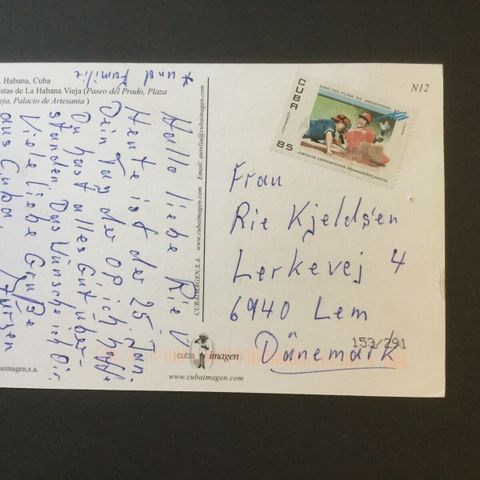 Habana, Cuba
istas de La Habana Vieja (Paseo del Prado, Plaza
eja, Palacio de Artesania )
* und Familie
Hallo liebe Rie
Heute ist der 25. Jan.
Dein Tag der OP, ich hoffe
Du hast alles Gut über-
standen. Das Wünsche ich Dir.
Viele liebe Grüße
aus Cuba.
CUBAIMAGEN.S.A. www.cubaimagen.com
cuba imagen
www.cubaimagen.com
aimagen,s.a.
N12
MAR DEL PLATA 95, ARGENTINA
CUBA
85
JUEGOS DEPORTIVOS PANAMERICANOS
Frau
Rie Kjeldsen
Lerkevej 4
6940 Lem
Dänemark
153/291